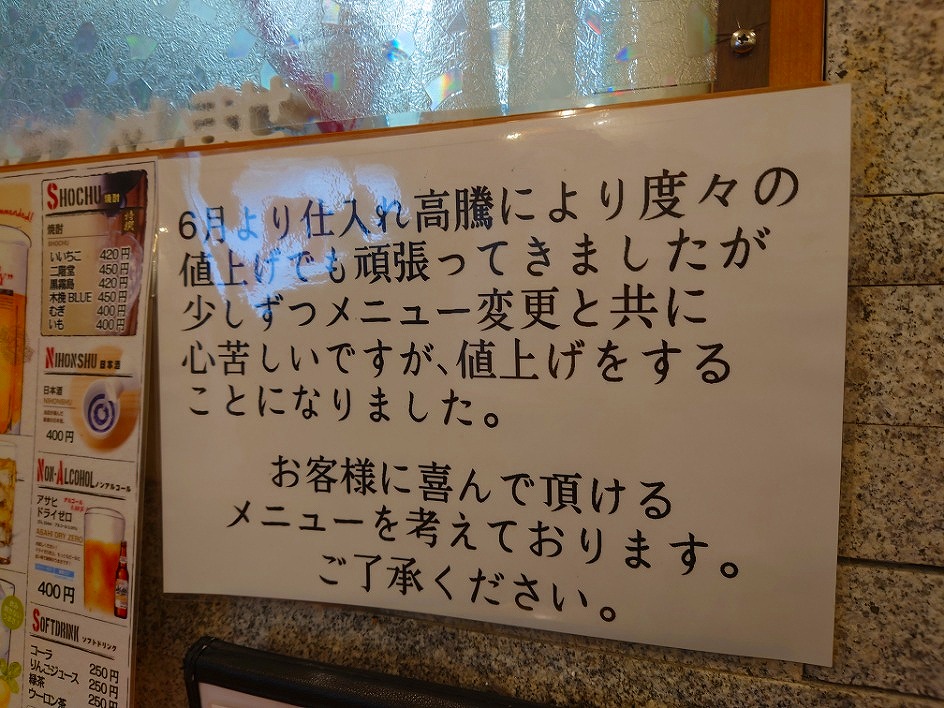 SHOCHU 焼酎
特撰
焼酎
SHOCHU
いいちこ 420円
二階堂 450円
黒霧島 420円
木挽BLUE 450円
むぎ 400円
いも 400円
NIHONSHU 日本酒
日本酒
NIHONSHU
400円
NON-ALCOHOL ノンアルコール
アサヒ
ドライゼロ
ASAHI DRY ZERO
400円
SOFTDRINK ソフトドリンク
コーラ 250円
りんごジュース 250円
緑茶 250円
ウーロン茶 250円
6月より仕入れ高騰により度々の
値上げでも頑張ってきましたが
少しずつメニュー変更と共に
心苦しいですが、値上げをする
ことになりました。
お客様に喜んで頂ける
メニューを考えております。
ご了承ください。